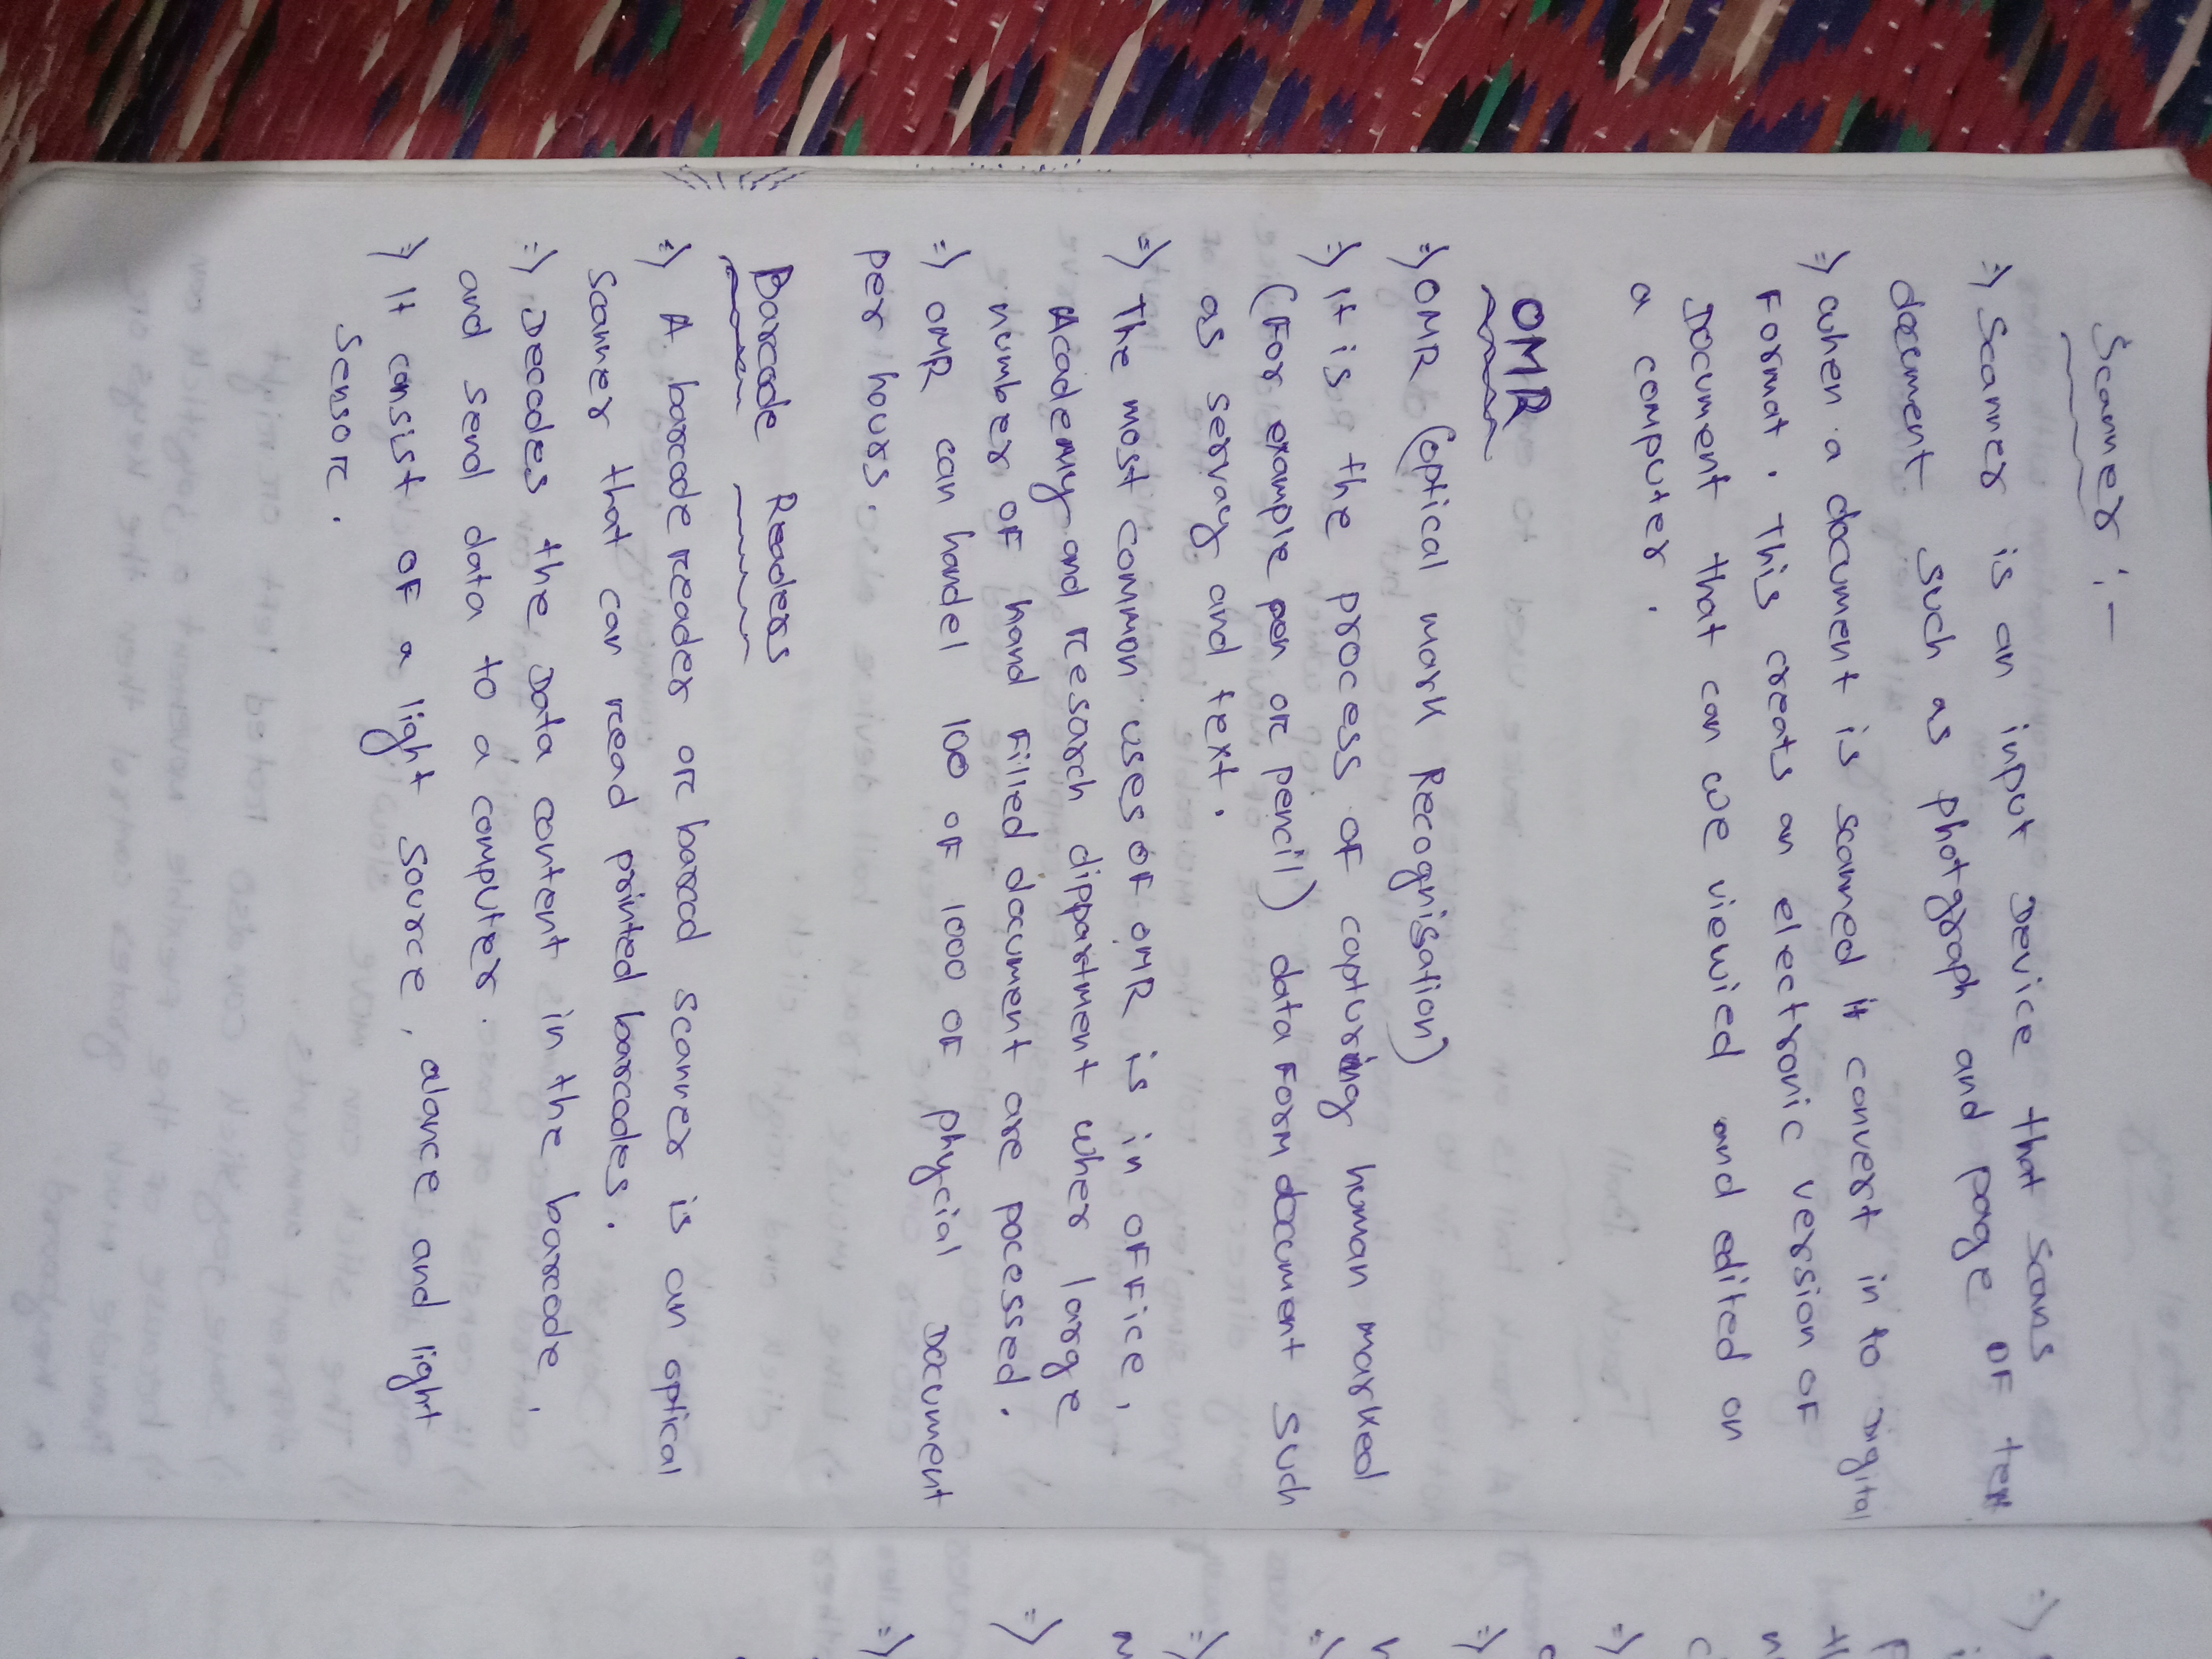 Scanner :-
=> Scanner is an input Device that scans
document such as photgraph and page OF text
=> when a document is scanned it convert in to Digital
Format. This creats an electronic version OF
Document that can we viewied and edited on
a computer.
OMR
=> OMR (optical mark Recognisation)
=> It is the process OF capturing human marked
(For example pen or pencil) data Form document such
as servay and text.
=> The most common uses OF OMR is in OFFice,
Academy and resarch dippartment wher large
number OF hand Filled document are pocessed.
=> OMR can handel 100 OF 1000 OF phycial Document
per hours.
Barcode Readers
=> A barcode reader or barcod scanner is an optical
scanner that can read printed barcodes.
=> Decodes the Data content in the barcode,
and send data to a computer.
=> It consist OF a light source, alance and light
Sensor.